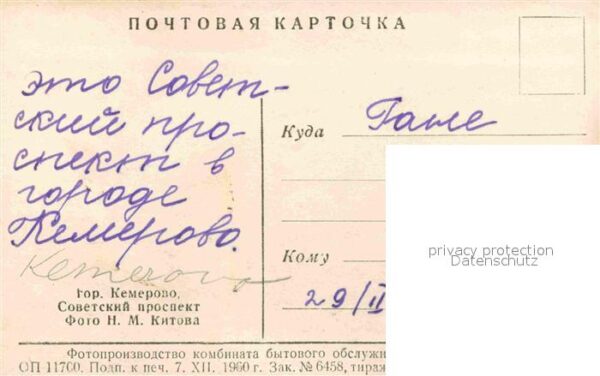 ПОЧТОВАЯ КАРТОЧКА
это Совет-
ский про-
спект в
городе
Кемерово.
Kemerovo
Гор. Кемерово,
Советский проспект
Фото Н. М. Китова
Куда Гале
Кому
29/II
privacy protection
Datenschutz
Фотопроизводство комбината бытового обслужи
ОП 11760. Подп. к печ. 7. XII. 1960 г. Зак. № 6458, тираж